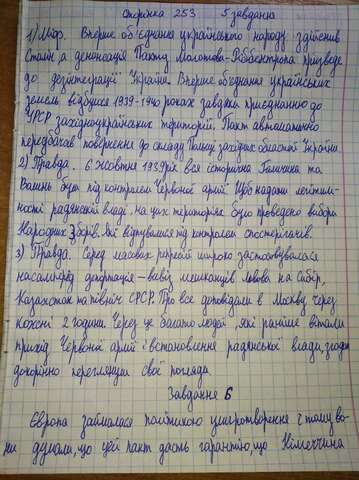 Сторінка 253 5 завдання
1) Міф. Вперше об'єднання українського народу здійснив
Сталін, а денонсація Пакту Молотова-Ріббентропа призведе
до дезінтеграції України. Вперше об'єднання українських
земель відбулося 1939-1940 роках завдяки приєднанню до
УРСР західноукраїнських територій. Пакт автоматично
передбачав повернення до складу Польщі західних областей України.
2) Правда. 6 жовтня 1939 рік вся історична Галичина та
Волинь були під контролем Червоної армії. Щоб надати легітим-
ності радянській владі, на цих територіях було проведено вибори
Народних зборів. Які відбувалися під контролем спостерігачів.
3) Правда. Серед масових репресій широко застосовувалася
насамперед депортація - вивіз мешканців Львова на Сибір,
Казахстан на північ СРСР. Про все доповідали в Москву через
кожні 2 години. Через це багато людей, які раніше вітали
прихід Червоної армії і встановлення радянської влади, згодом
докорінно переглянули свої погляди.
Завдання 6
Європа займалася політикою умиротворення і тому во-
ни думали, що цей пакт дасть гарантію, що Німеччина